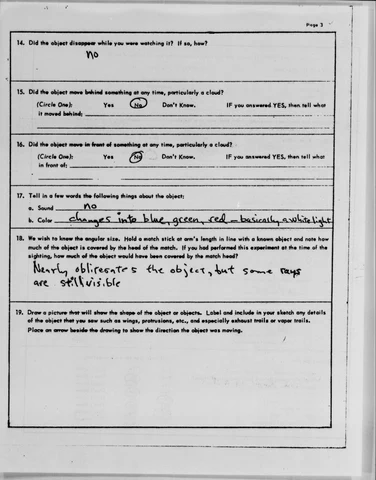 Page 3
14. Did the object disappear while you were watching it? If so, how?
no
15. Did the object move behind something at any time, particularly a cloud?
(Circle One): Yes No Don't Know. IF you answered YES, then tell what
it moved behind:
16. Did the object move in front of something at any time, particularly a cloud?
(Circle One): Yes No Don't Know. IF you answered YES, then tell what
in front of:
17. Tell in a few words the following things about the object:
a. Sound no
b. Color changes into blue, green, red - basically a white light
18. We wish to know the angular size. Hold a match stick at arm's length in line with a known object and note how
much of the object is covered by the head of the match. If you had performed this experiment at the time of the
sighting, how much of the object would have been covered by the match head?
Nearly obliterates the object, but some rays
are still visible
19. Draw a picture that will show the shape of the object or objects. Label and include in your sketch any details
of the object that you saw such as wings, protrusions, etc., and especially exhaust trails or vapor trails.
Place an arrow beside the drawing to show the direction the object was moving.